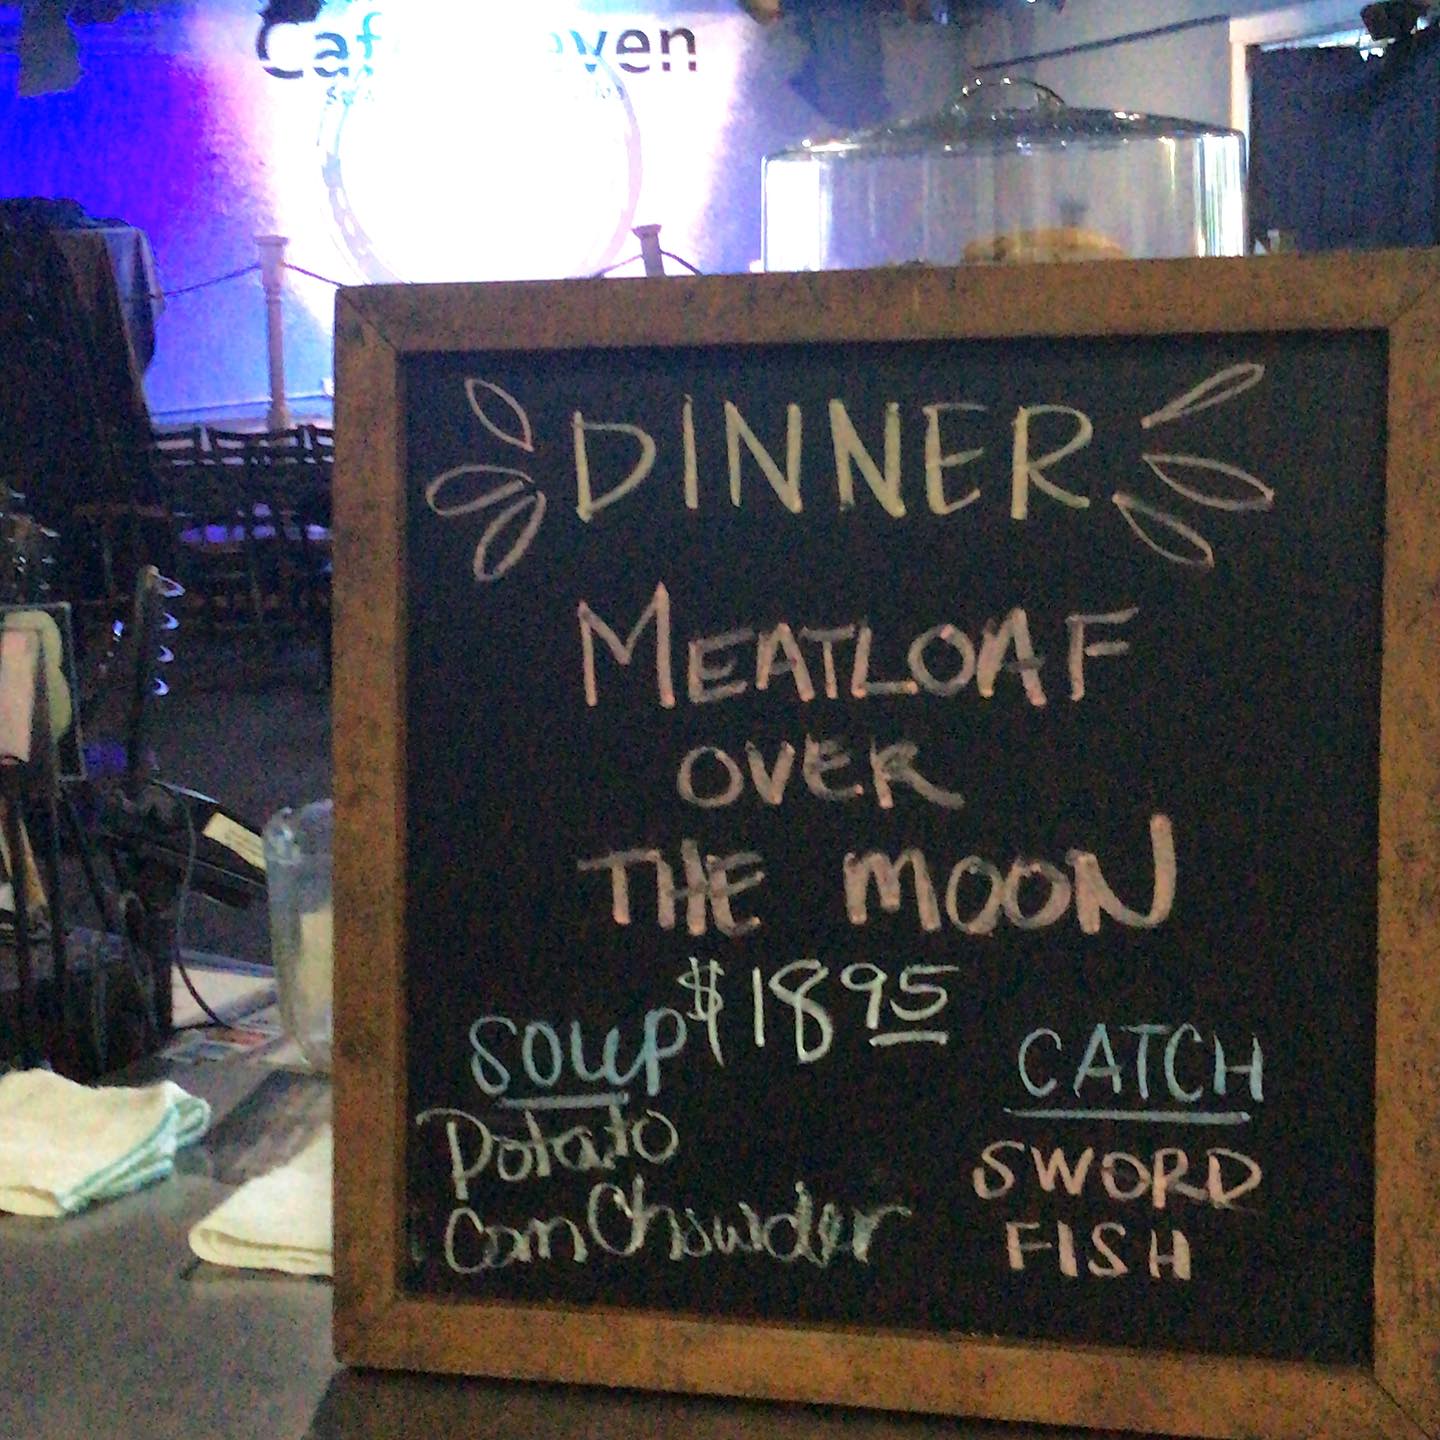 DINNER
MEATLOAF
OVER
THE MOON
$18 95
SOUP
Potato
Corn Chowder
CATCH
SWORD
FISH